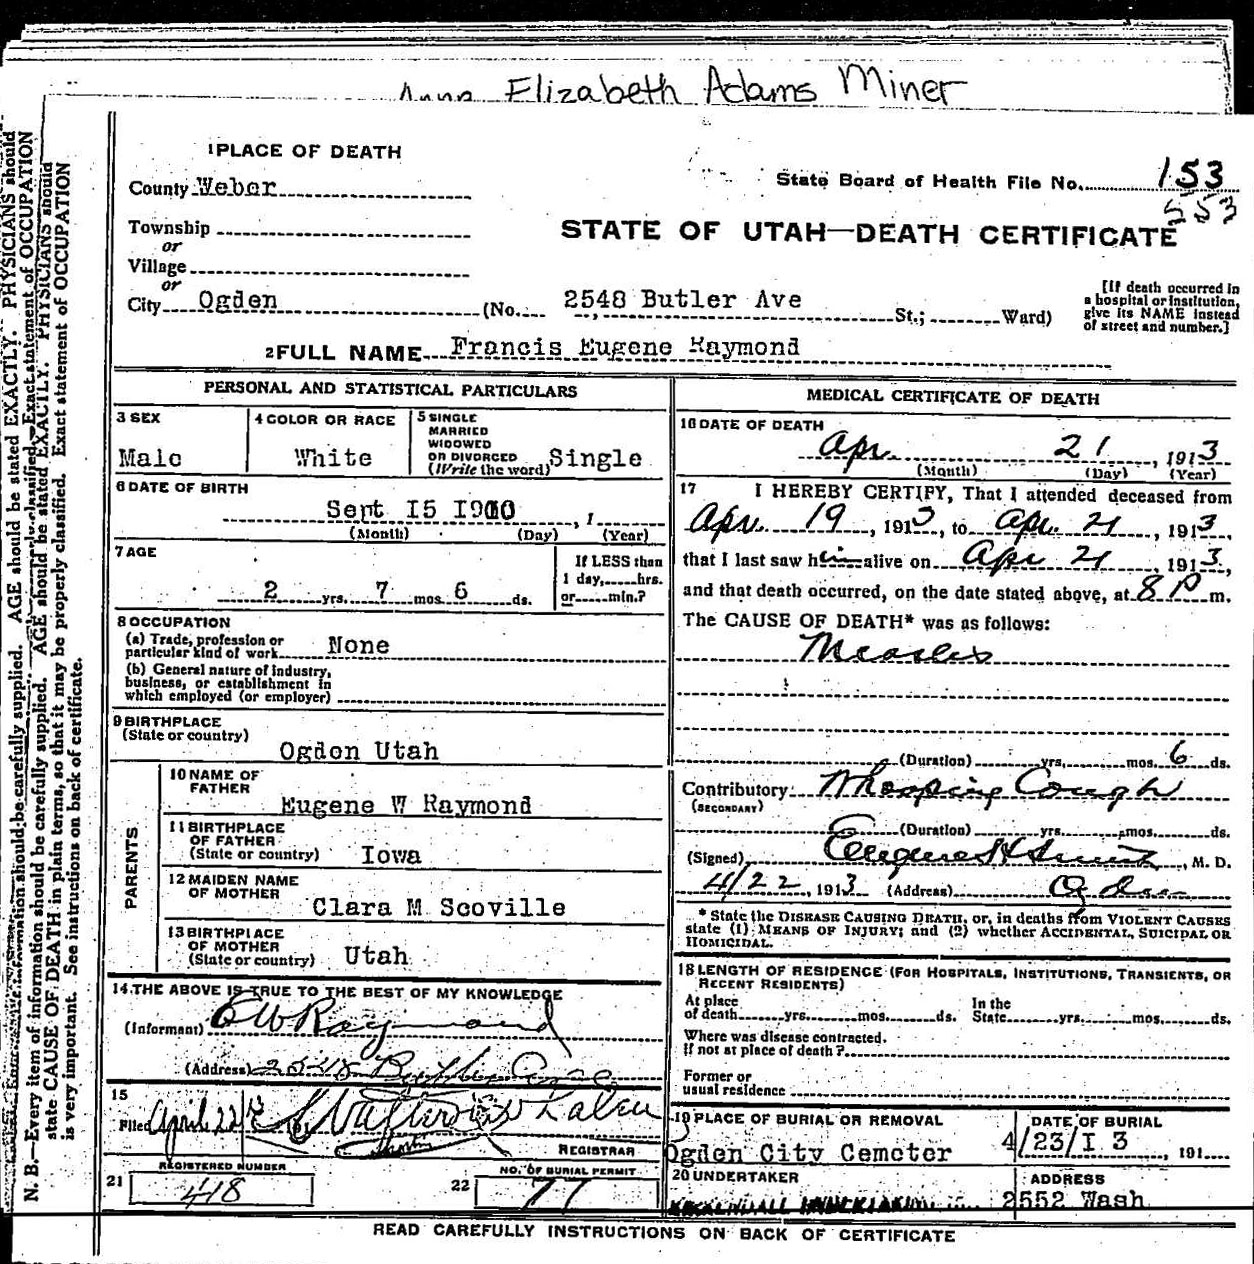 Anna Elizabeth Adams Miner
1 PLACE OF DEATH
County Weber
Township
or
Village
or
City Ogden (No. 2548 Butler Ave St.; Ward)
State Board of Health File No. 153
553
STATE OF UTAH—DEATH CERTIFICATE
[If death occurred in
a hospital or institution,
give its NAME instead
of street and number.]
2 FULL NAME Francis Eugene Raymond
PERSONAL AND STATISTICAL PARTICULARS
3 SEX
Male
4 COLOR OR RACE
White
5 SINGLE
MARRIED
WIDOWED
OR DIVORCED
(Write the word) Single
6 DATE OF BIRTH
Sept I5 I910, 1
(Month) (Day) (Year)
7 AGE
2 yrs. 7 mos 6 ds.
If LESS than
1 day, hrs.
or min.?
8 OCCUPATION
(a) Trade, profession or
particular kind of work None
(b) General nature of industry,
business, or establishment in
which employed (or employer)
9 BIRTHPLACE
(State or country)
Ogden Utah
PARENTS
10 NAME OF
FATHER
Eugene W Raymond
11 BIRTHPLACE
OF FATHER
(State or country) Iowa
12 MAIDEN NAME
OF MOTHER
Clara M Scoville
13 BIRTHPLACE
OF MOTHER
(State or country) Utah
14 THE ABOVE IS TRUE TO THE BEST OF MY KNOWLEDGE
(Informant) E W Raymond
(Address) 2548 Butler Ave
15
Filed April 22
REGISTRAR
REGISTERED NUMBER
21 418
NO. OF BURIAL PERMIT
22 77
MEDICAL CERTIFICATE OF DEATH
16 DATE OF DEATH
Apr. 21, 1913
(Month) (Day) (Year)
17 I HEREBY CERTIFY, That I attended deceased from
Apr. 19, 1913, to Apr. 21, 1913,
that I last saw him alive on Apr 21, 1913,
and that death occurred, on the date stated above, at 8 P m.
The CAUSE OF DEATH* was as follows:
Measles
(Duration) yrs. mos. 6 ds.
Contributory Whooping Cough
(SECONDARY)
(Duration) yrs. mos. ds.
(Signed) Eugene H Smith, M. D.
4/22, 1913 (Address) Ogden
* State the DISEASE CAUSING DEATH, or, in deaths from VIOLENT CAUSES
state (1) MEANS OF INJURY; and (2) whether ACCIDENTAL, SUICIDAL OR
HOMICIDAL.
18 LENGTH OF RESIDENCE (FOR HOSPITALS, INSTITUTIONS, TRANSIENTS, OR
RECENT RESIDENTS)
At place
of death yrs. mos. ds.
In the
State yrs. mos. ds.
Where was disease contracted.
If not at place of death?
Former or
usual residence
19 PLACE OF BURIAL OR REMOVAL
Ogden City Cemeter
DATE OF BURIAL
4/23/I 3, 191
20 UNDERTAKER
ADDRESS
2552 Wash
READ CAREFULLY INSTRUCTIONS ON BACK OF CERTIFICATE
N. B.—Every item of information should be carefully supplied. AGE should be stated EXACTLY. PHYSICIANS should
state CAUSE OF DEATH in plain terms, so that it may be properly classified. Exact statement of OCCUPATION
is very important. See instructions on back of certificate.